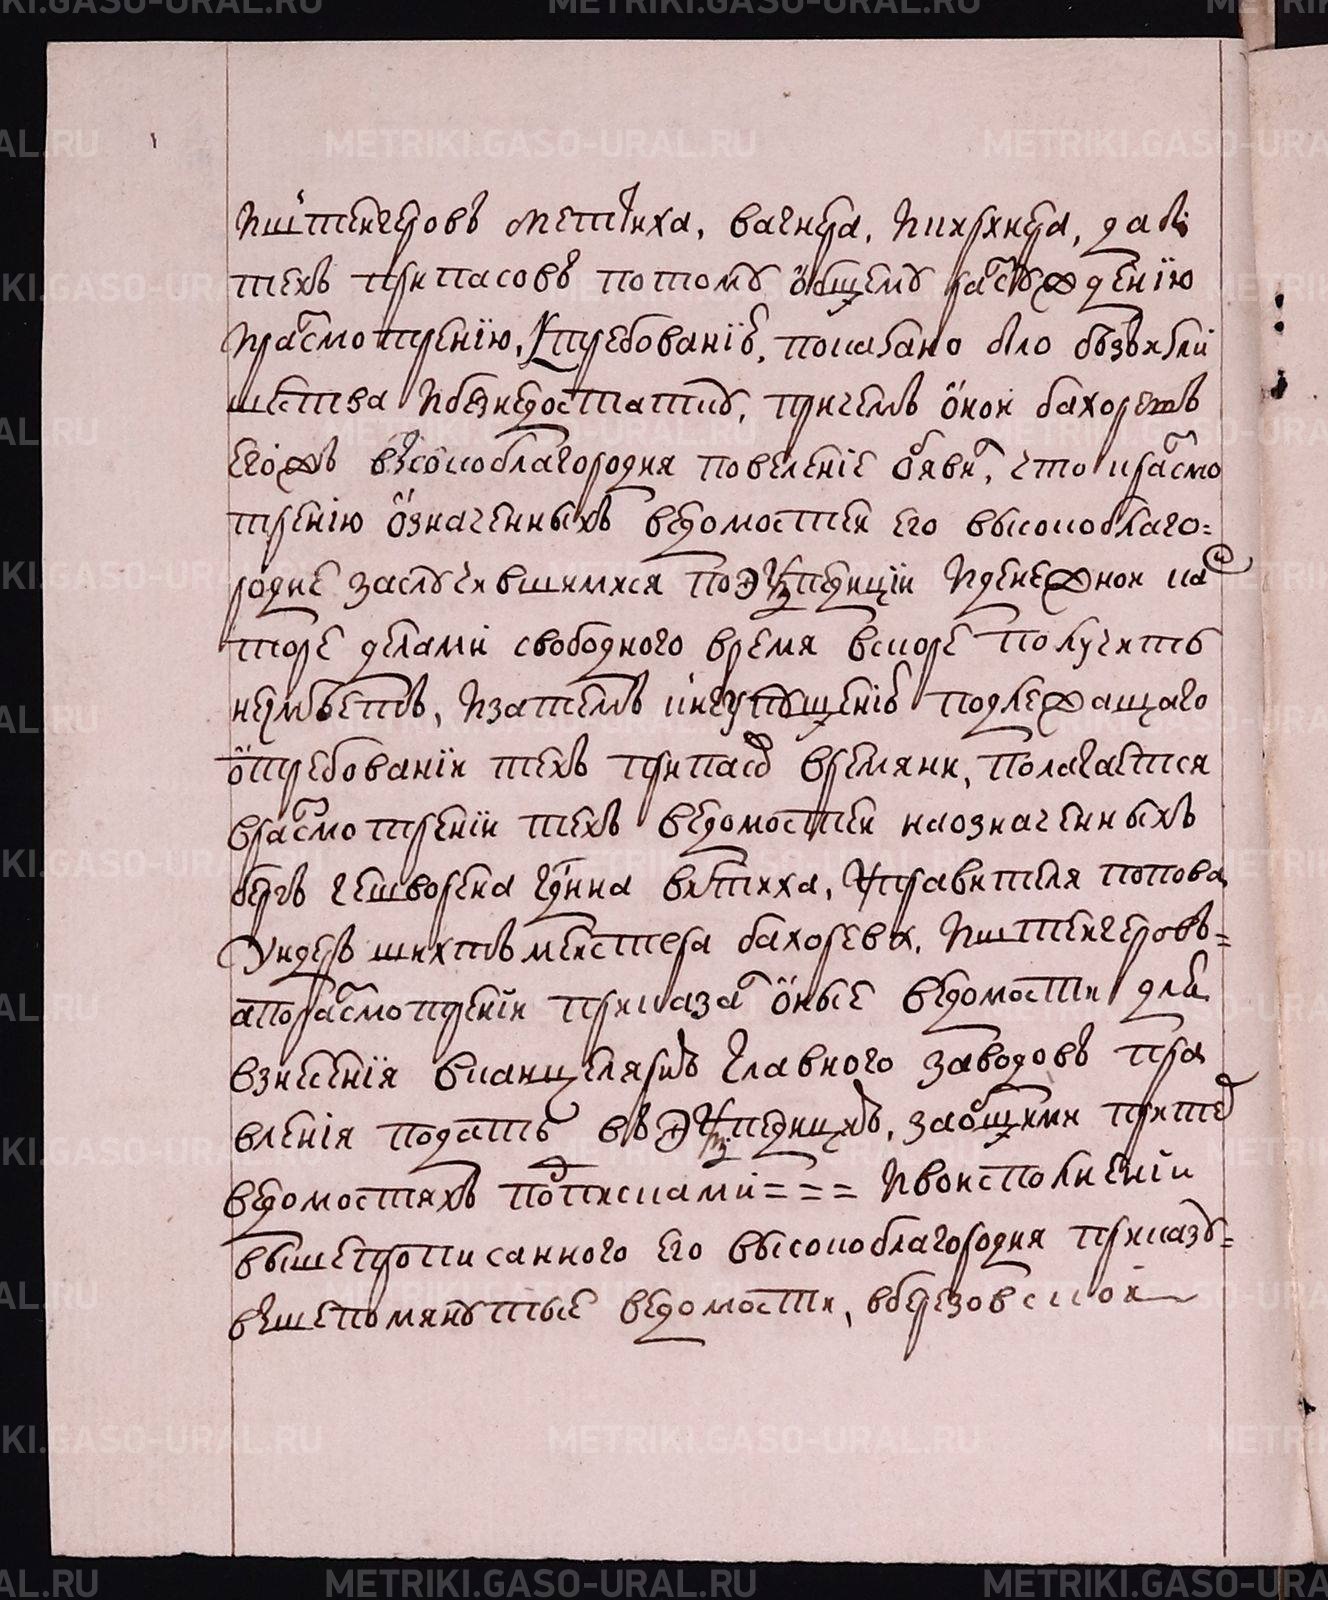 METRIKI.GASO-URAL.RU
иштейгеров метиха, вагнера, пихнера, дабы
техъ припасовъ потому общему разсуждению
ирасмотрению, ктребованию, показано было безъизли
шества ибезнедостатку, причемъ оной бахоревъ
егожъ высокоблагородия повеление объявил, что красмо
трению означенныхъ ведомостей его высокоблаго=
родие заслучившимися поэкспедиции иденежной ка
торе делами свободного время вскоре получить
неможетъ, изатемъ
подлежащаго
отребовании техъ припасов времяни, полагается
врасмотрении техъ ведомостей наозначенныхъ
бергъ гешворена
управителя попова
ундеръ шихтъмейстера бахорева, иштейгеровъ=
апорасмотрении приказал оные ведомости для
взнесения вканцелярию главного заводовъ пра
вления подать въ экспедицию, заобщими притех
ведомостяхъ подписками = = = ивоисполнении
вышепрописанного его высокоблагородия приказу=
вышепомянутые ведомости, вберезовской